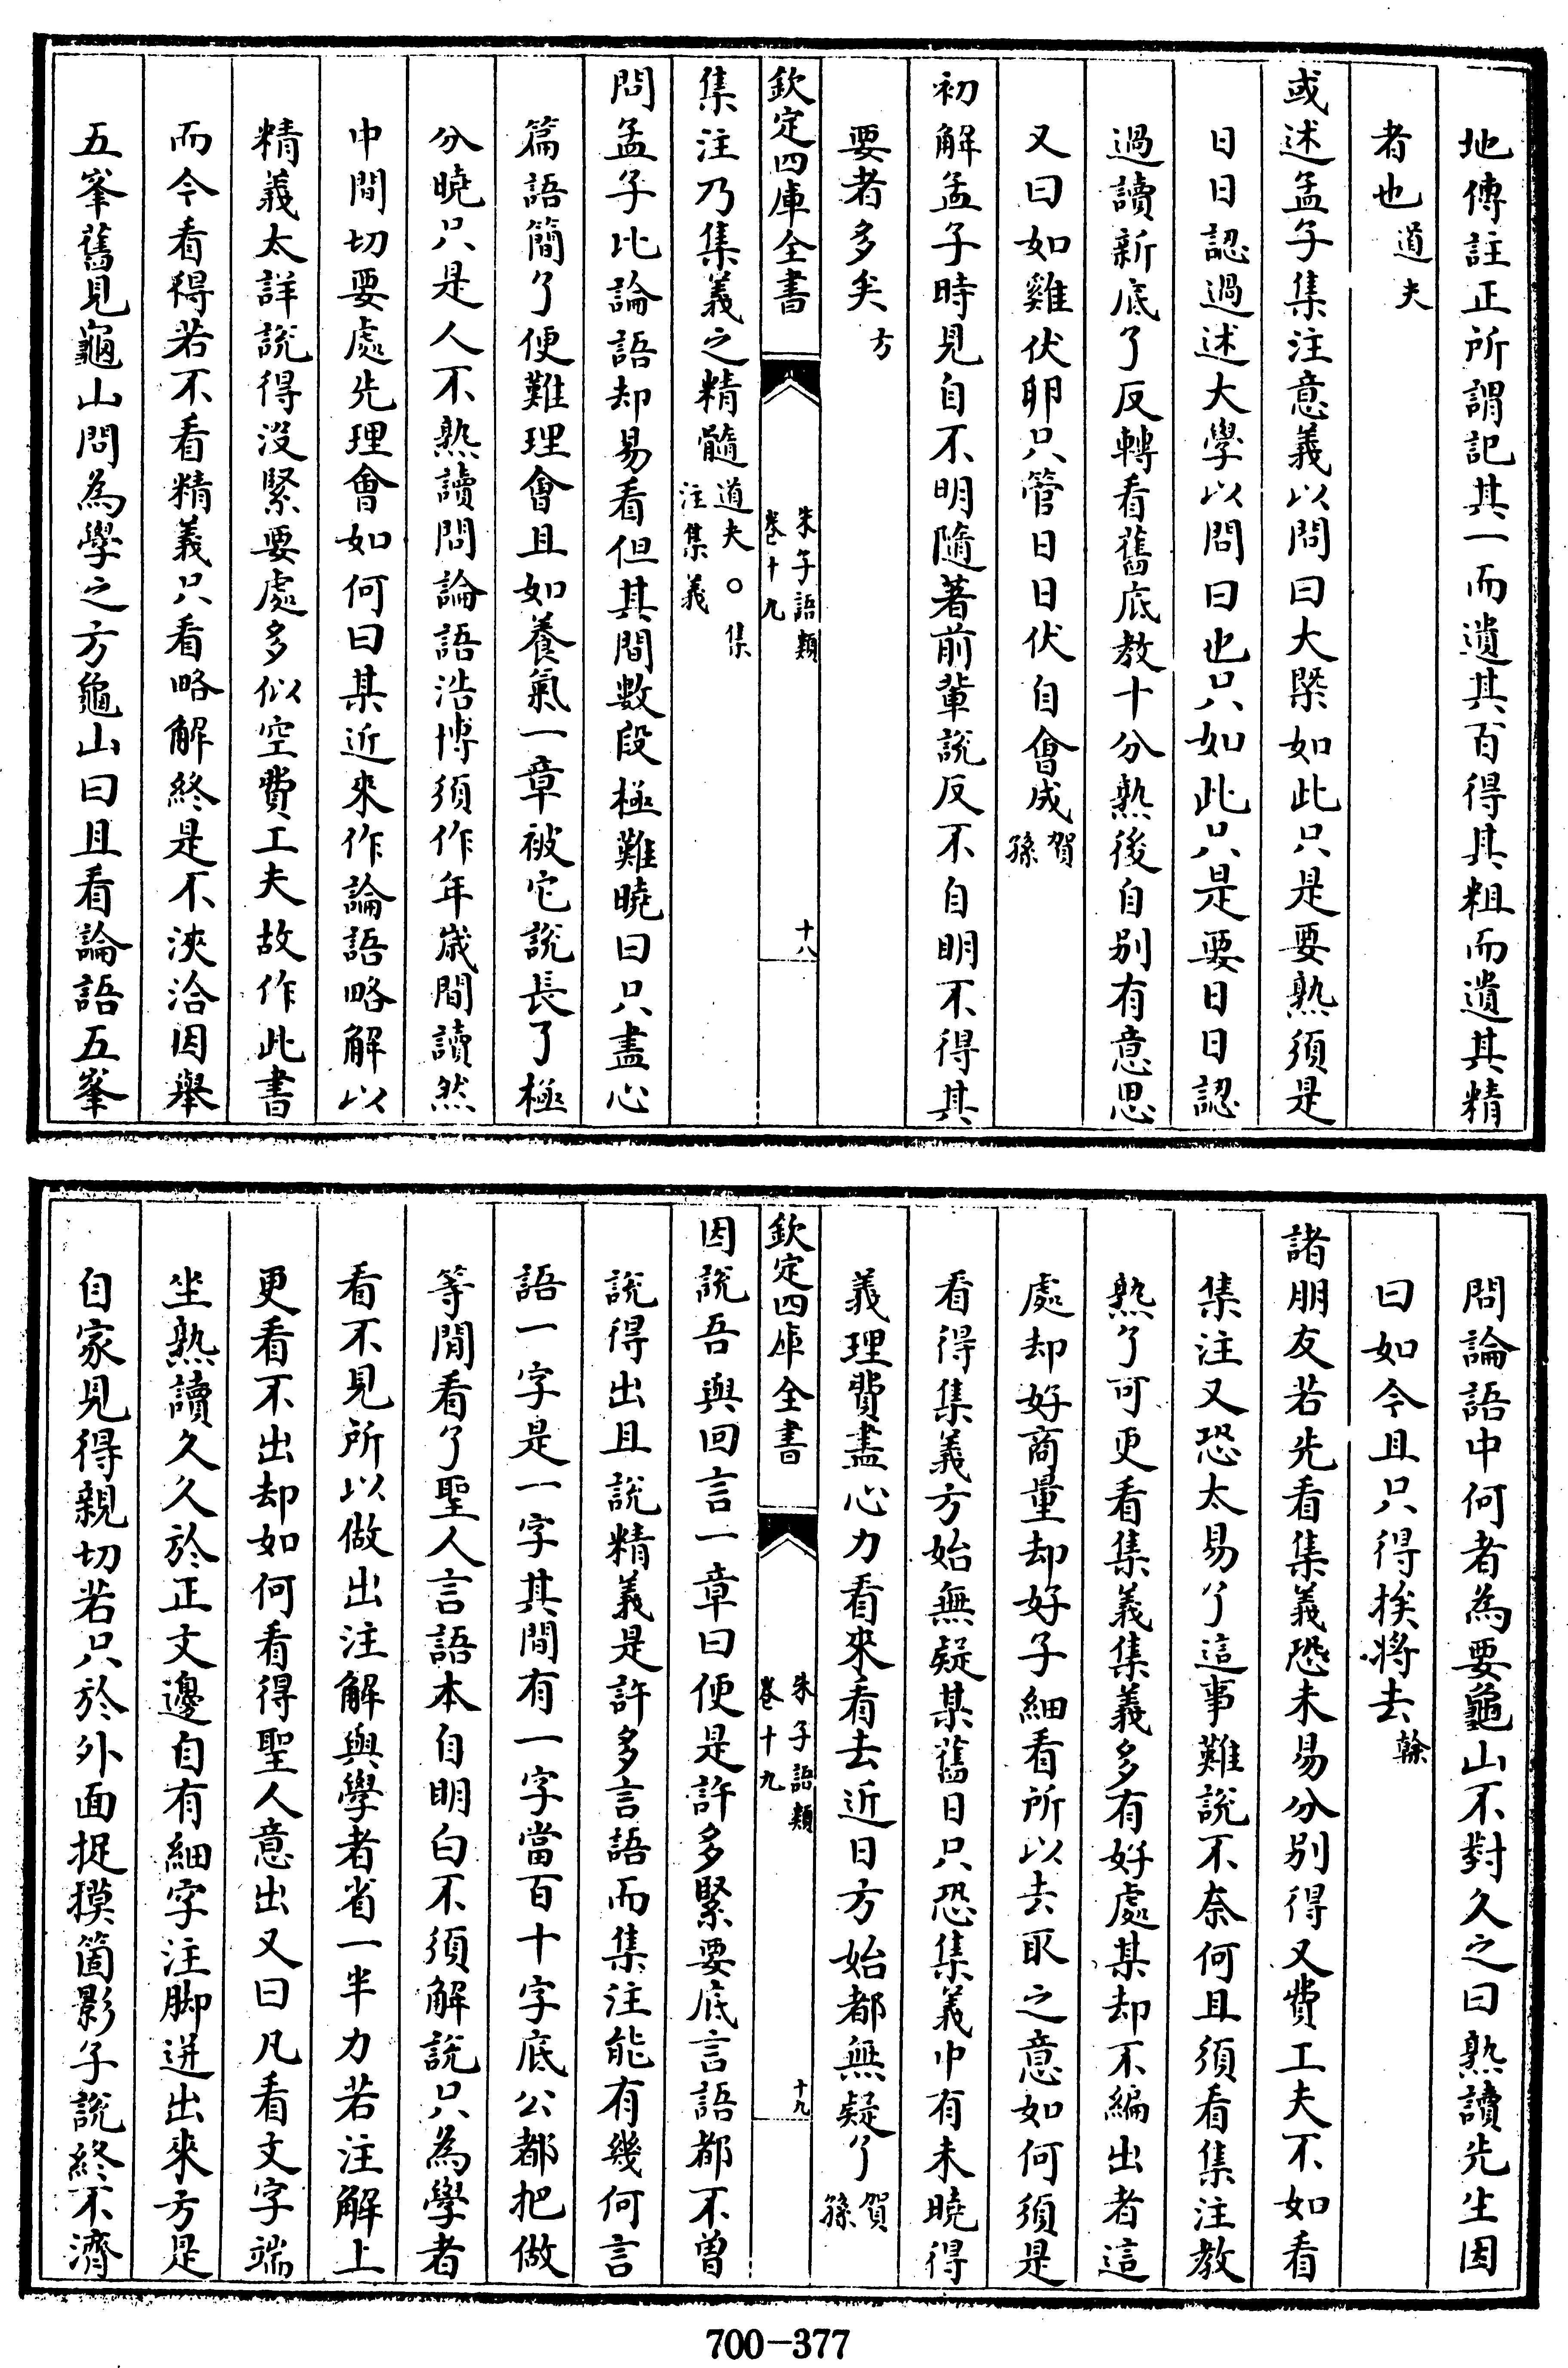 地傳註正所謂記其一而遺其百得其粗而遺其精
者也道夫
或述孟子集注意義以問曰大槩如此只是要熟須是
日日認過述大學以問曰也只如此只是要日日認
過讀新底了反轉看舊底教十分熟後自别有意思
又曰如雞伏卵只管日日伏自會成賀孫
初解孟子時見自不明隨著前輩說反不自明不得其
要者多矣方
欽定四庫全書
朱子語類
卷十九
十八
集注乃集義之精髓道夫○集注集義
問孟子比論語却易看但其間數段極難曉曰只盡心
篇語簡了便難理會且如養氣一章被它說長了極
分曉只是人不熟讀問論語浩博須作年歲間讀然
中間切要處先理會如何曰某近來作論語略解以
精義太詳說得沒緊要處多似空費工夫故作此書
而今看得若不看精義只看略解終是不浹洽因舉
五峯舊見龜山問為學之方龜山曰且看論語五峯
問論語中何者為要龜山不對久之曰熟讀先生因
曰如今且只得挨將去榦
諸朋友若先看集義恐未易分别得又費工夫不如看
集注又恐太易了這事難說不奈何且須看集注教
熟了可更看集義集義多有好處某却不編出者這
處却好商量却好子細看所以去取之意如何須是
看得集義方始無疑某舊日只恐集義中有未曉得
義理費盡心力看來看去近日方始都無疑了賀孫
欽定四庫全書
朱子語類
卷十九
十九
因說吾與回言一章曰便是許多緊要底言語都不曾
說得出且說精義是許多言語而集注能有幾何言
語一字是一字其間有一字當百十字底公都把做
等閒看了聖人言語本自明白不須解說只為學者
看不見所以做出注解與學者省一半力若注解上
更看不出却如何看得聖人意出又曰凡看文字端
坐熟讀久久於正文邊自有細字注脚迸出來方是
自家見得親切若只於外面捉摸箇影子說終不濟
700-377